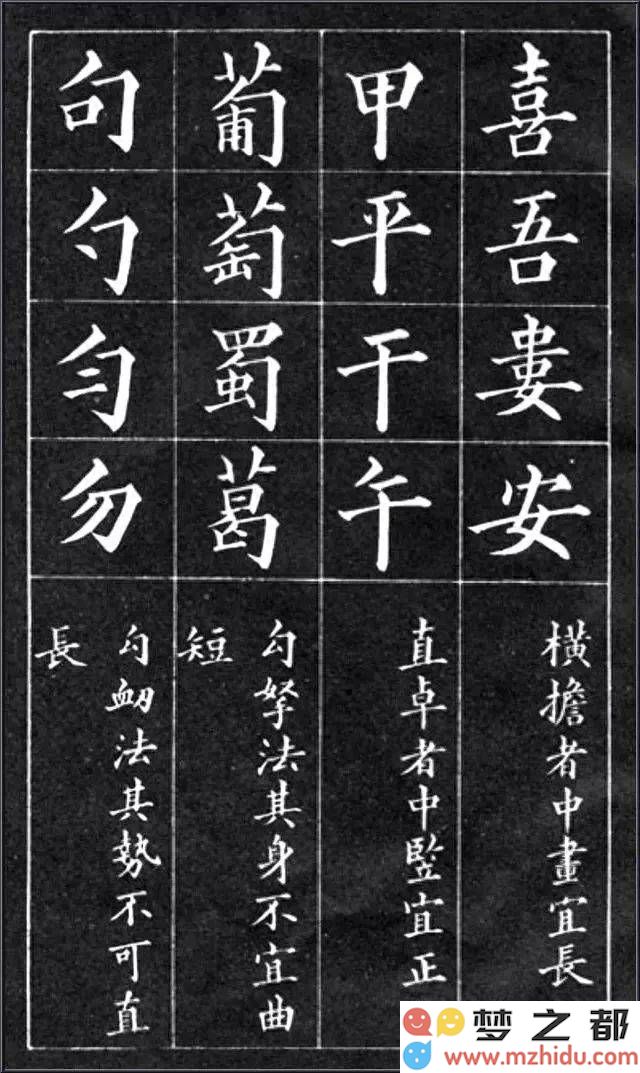 喜吾婁安
橫擔者中畫宜長
甲平干午
直卓者中竪宜正
葡萄蜀葛
勾拏法其身不宜曲
短
句勺勻勿
勾衂法其勢不可直
長
梦之都
www.mzhidu.com